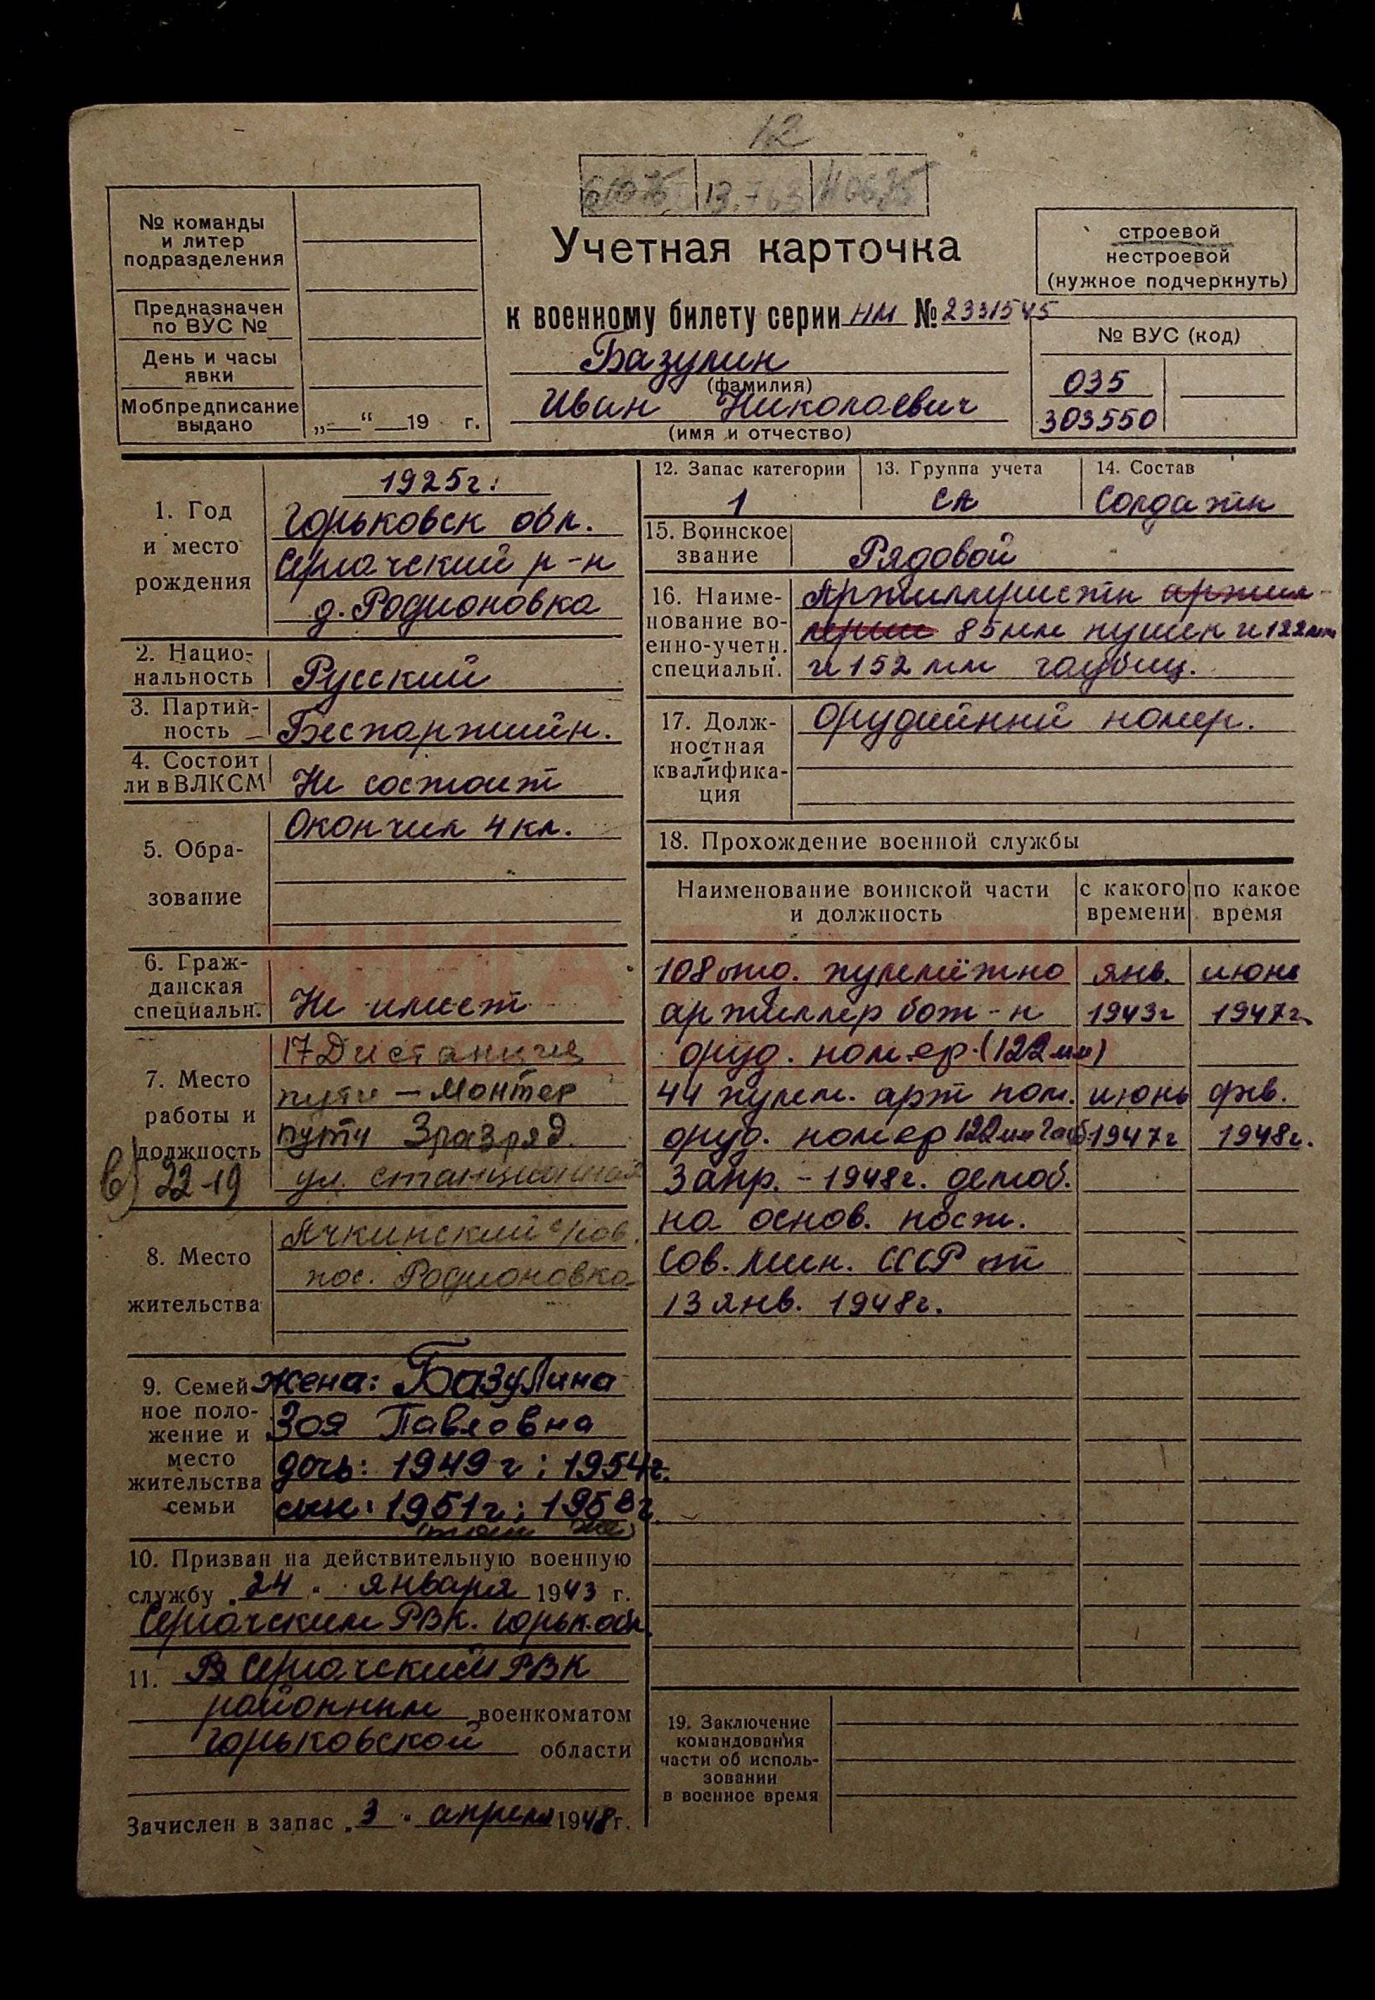 12
13.763
№ команды
и литер
подразделения
Предназначен
по ВУС №
День и часы
явки
Мобпредписание
выдано
„ “ 19 г.
Учетная карточка
к военному билету серии НМ № 2331545
Базулин
(фамилия)
Иван Николаевич
(имя и отчество)
строевой
нестроевой
(нужное подчеркнуть)
№ ВУС (код)
035
303550
1. Год
и место
рождения
1925г.
Горьковск обл.
Сергачский р-н
д. Родионовка
2. Нацио-
нальность
Русский
3. Партий-
ность
Беспартийн.
4. Состоит
ли в ВЛКСМ
Не состоит
5. Обра-
зование
Окончил 4 кл.
6. Граж-
данская
специальн.
Не имеет
7. Место
работы и
должность
в) 22-19
17 Дистанция
пути — Монтер
пути 3 разряд.
ул. станционная
8. Место
жительства
Ачкинский
пос. Родионовка
9. Семей-
ное поло-
жение и
место
жительства
семьи
жена: Базулина
Зоя Павловна
дочь: 1949 г; 1954г.
сын: 1951г; 1958г.
(там же)
10. Призван на действительную военную
службу „24“ января 1943 г.
Сергачским РВК. Горьк. обл.
11. В Сергачский РВК
районным военкоматом
Горьковской области
Зачислен в запас „3“ апреля 1948г.
12. Запас категории
1
13. Группа учета
СА
14. Состав
Солдатск
15. Воинское
звание
Рядовой
16. Наиме-
нование во-
енно-учетн.
специальн.
Артиллеристы артил-
лерии 85мм пушек и 122мм
и 152 мм гаубиц.
17. Долж-
ностная
квалифика-
ция
Орудийный номер.
18. Прохождение военной службы
Наименование воинской части
и должность
с какого
времени
по какое
время
108 отд. пулемётно янв. июнь
артиллер бат-н 1943г 1947г.
оруд. номер (122мм)
44 пулем. арт пол. июнь фев.
оруд. номер 122мм гауб 1947г 1948г.
3 апр. - 1948г. демоб.
на основ. пост.
Сов. Мин. СССР от
13 янв. 1948г.
19. Заключение
командования
части об исполь-
зовании
в военное время
КНИГА ПАМЯТИ